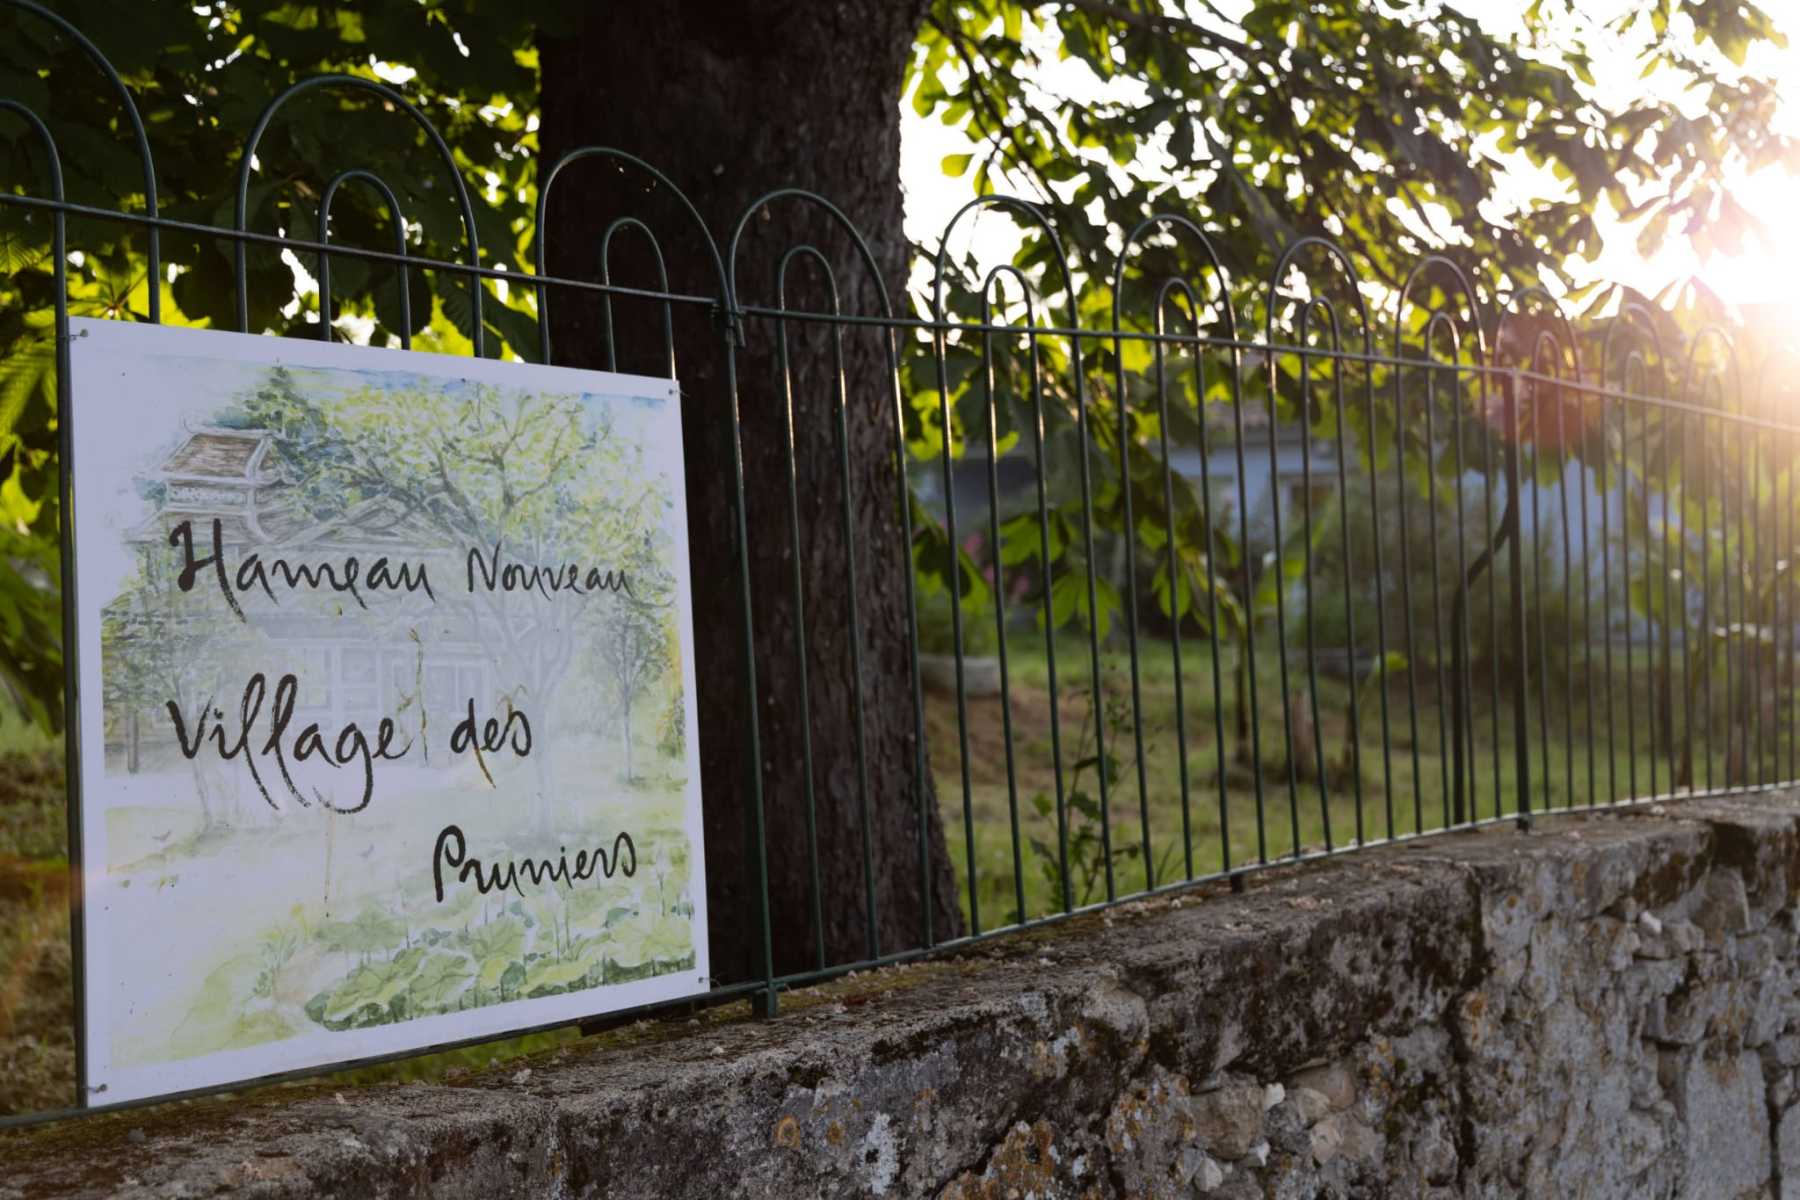 Hameau Nouveau
Village des
Pruniers